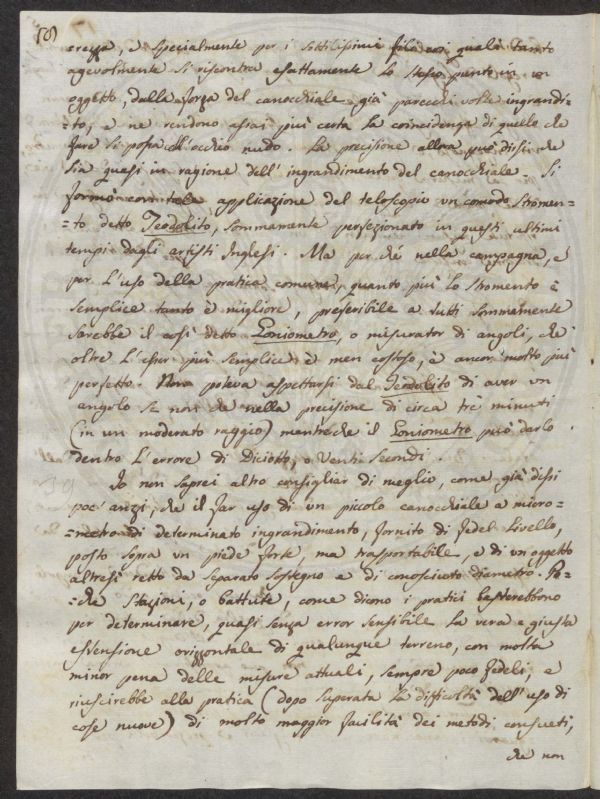 (8)
erezza, e specialmente per i sottilissimi fila coi quali tanto
agevolmente si riscontra esattamente lo stesso punto in un
oggetto, dalla forza del canocchiale già parecchi volte ingrandi=
=to, e ne rendono assai più certa la coincidenza di quello che
fare si possa all'occhio nudo. La precisione allora può dirsi che
sia quasi in ragione dell'ingrandimento del canocchiale. Si
formò con tale applicazione del telescopio un comodo stromen=
=to detto Teodolito, sommamente perfezionato in questi ultimi
tempi dagli artisti Inglesi. Ma per ché nella campagna, e
per l'uso della pratica comune, quanto più lo stromento è
semplice tanto è migliore, preferibile a tutti sommamente
sarebbe il così detto Goniometro, o misurator di angoli, che
oltre l'esser più semplice è men costoso, è ancor molto più
perfetto. Non poteva aspettarsi dal Teodolito di aver un
angolo se non che nella precisione di circa trè minuti
(in un moderato raggio) mentreche il Goniometro può darlo
dentro l'errore di Diciotto, o Venti secondi.
Io non saprei altro consigliar di meglio, come già dissi
poc'anzi, che il far uso di un piccolo canocchiale a micro=
=metro di determinato ingrandimento, fornito di fedel Livello,
posto sopra un piede forte, ma trasportabile, e di un oggetto
altresì retto da separato sostegno e di conosciuto diametro. Po=
=che stazioni, o battute, come dicono i pratici basterebbono
per determinare, quasi senza error sensibile la vera e giusta
estensione orizzontale di qualunque terreno, con molta
minor pena delle misure attuali, sempre poco fedeli, e
riuscirebbe alla pratica (dopo superata la difficoltà dell'uso di
cose nuove) di molto maggior facilità dei metodi consueti,
che non